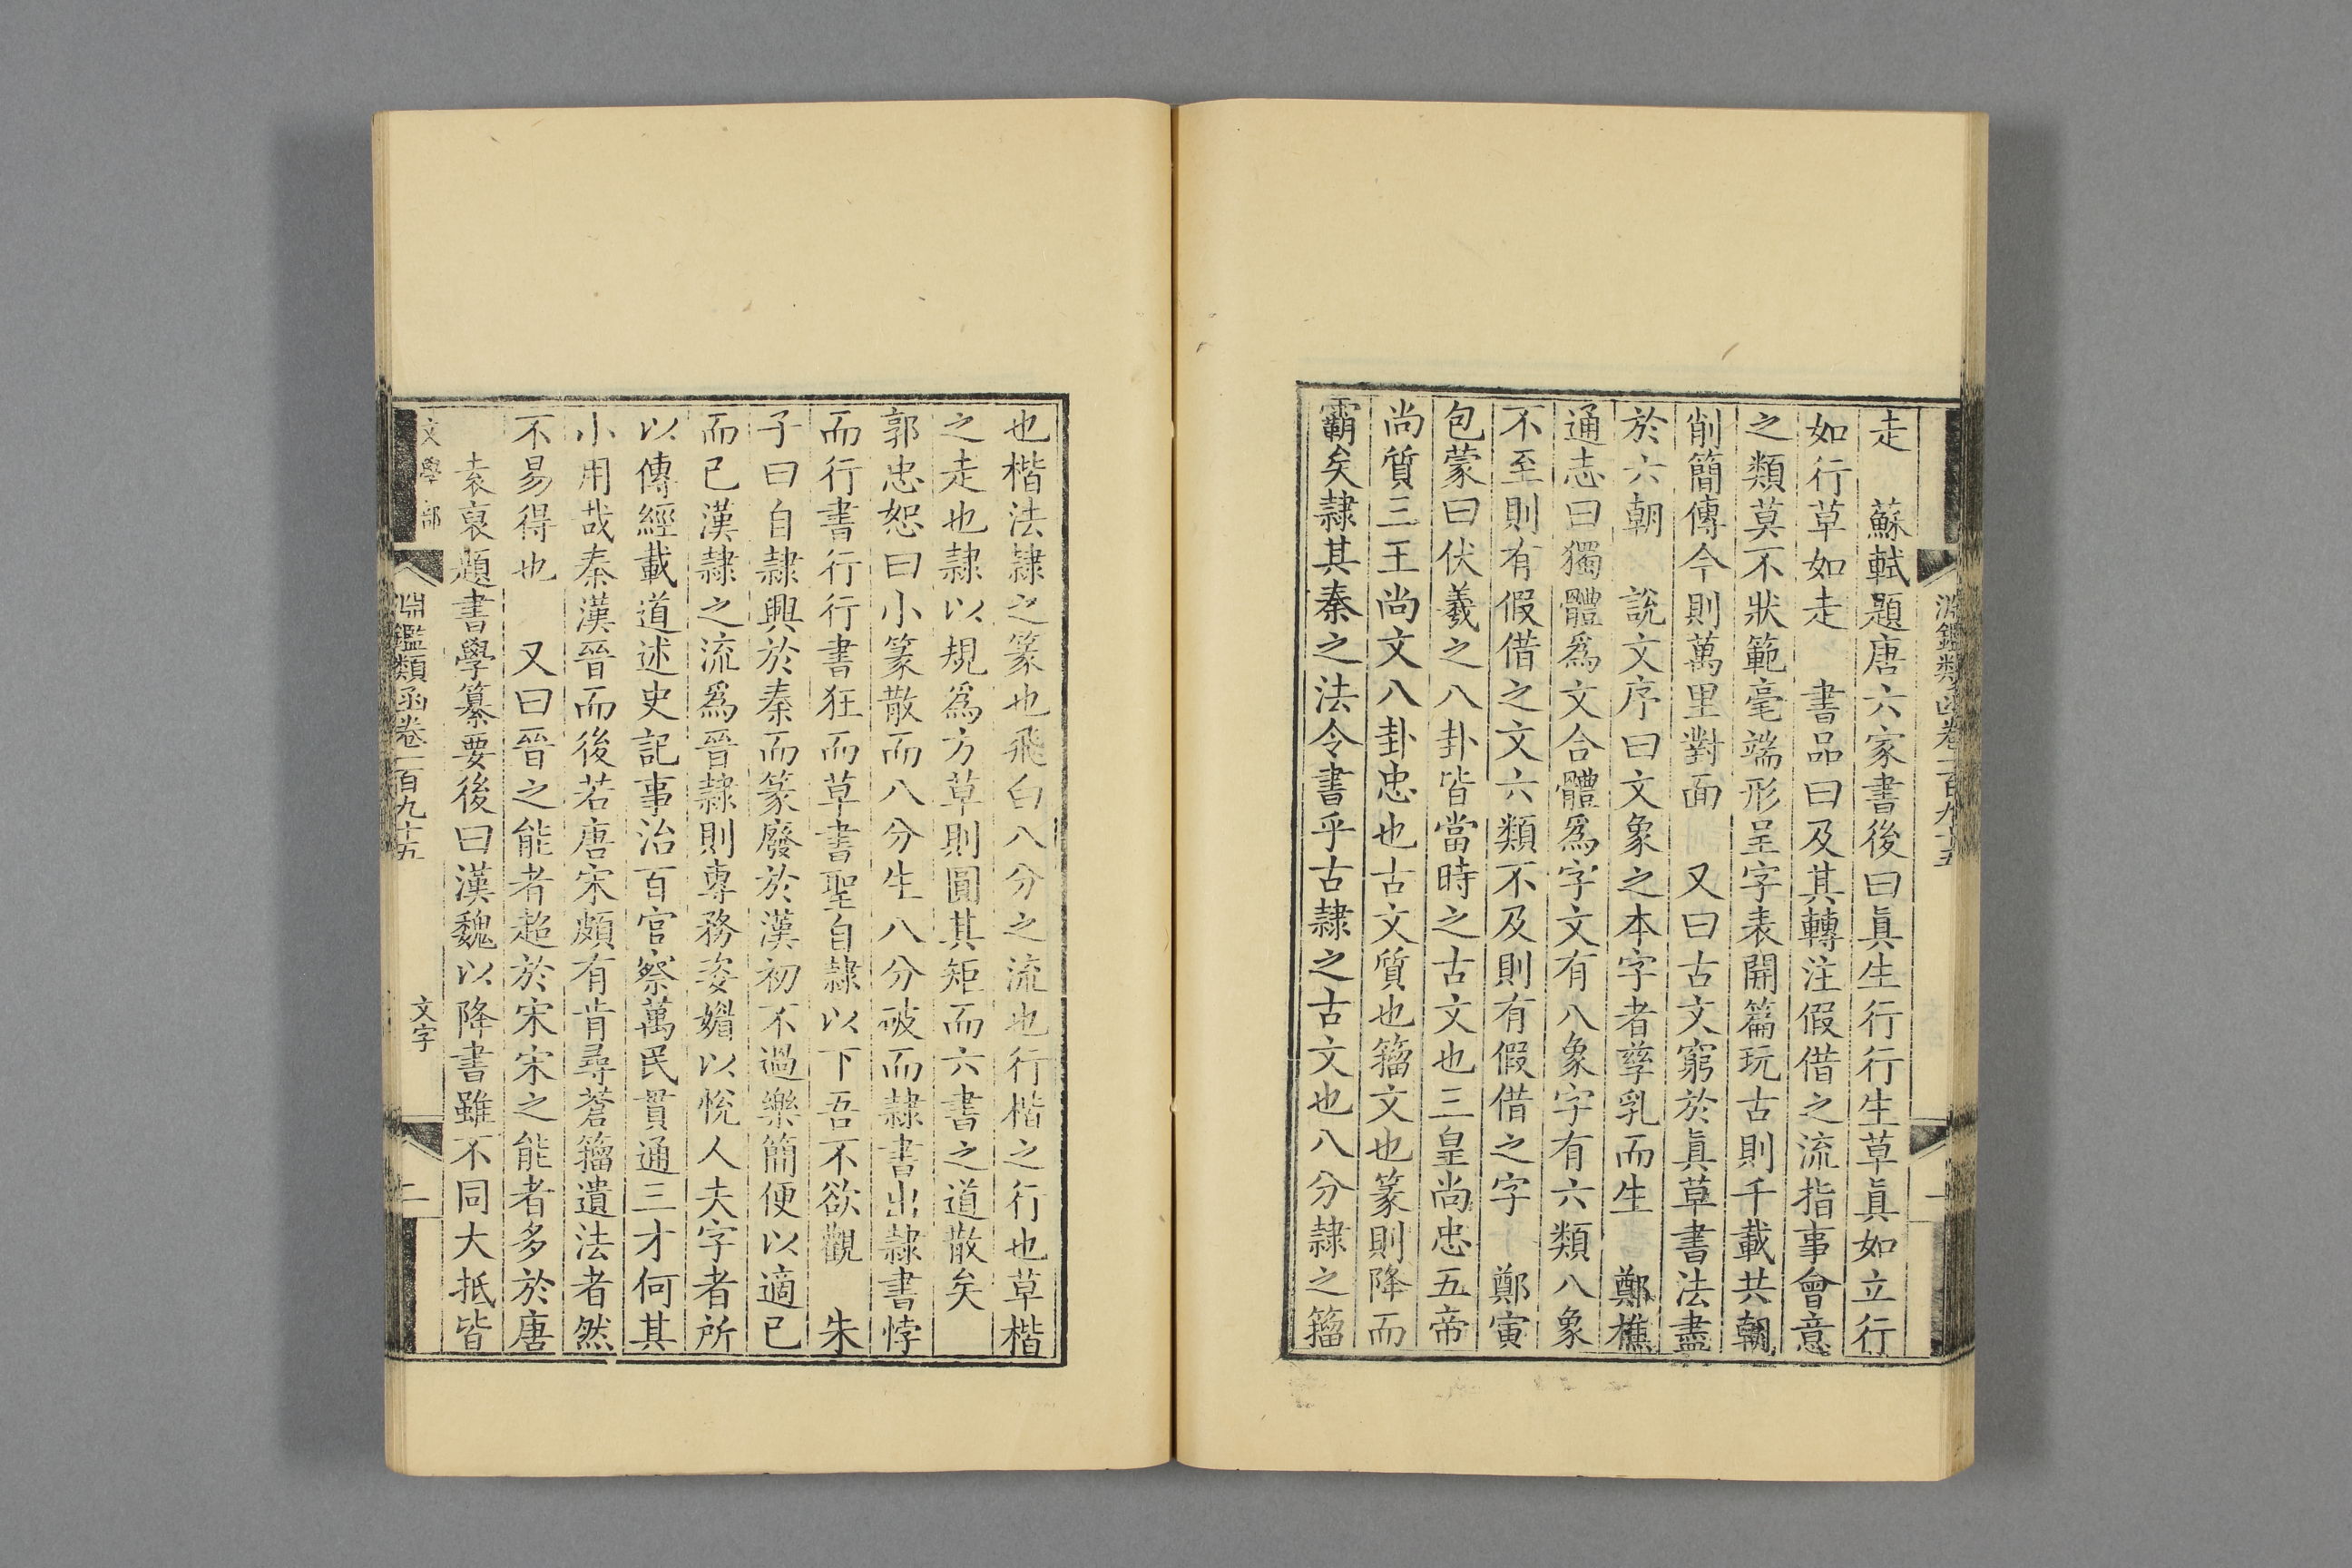 淵鑑類函卷一百九十五
一
走　蘇軾題唐六家書後曰眞生行行生草眞如立行
如行草如走　書品曰及其轉注假借之流指事會意
之類莫不狀範毫端形呈字表開篇玩古則千載共朝
削簡傳今則萬里對面　又曰古文窮於眞草書法盡
於六朝　說文序曰文象之本字者孳乳而生　鄭樵
通志曰獨體爲文合體爲字文有八象字有六類八象
不至則有假借之文六類不及則有假借之字　鄭寅
包蒙曰伏羲之八卦皆當時之古文也三皇尚忠五帝
尚質三王尚文八卦忠也古文質也籀文也篆則降而
霸矣隷其秦之法令書乎古隷之古文也八分隷之籀
也楷法隷之篆也飛白八分之流也行楷之行也草楷
之走也隷以規爲方草則圓其矩而六書之道散矣
郭忠恕曰小篆散而八分生八分破而隷書出隷書悖
而行書行行書狂而草書聖自隷以下吾不欲觀　朱
子曰自隷興於秦而篆廢於漢初不過樂簡便以適已
而已漢隷之流爲晉隷則專務姿媚以悅人夫字者所
以傳經載道述史記事治百官察萬民貫通三才何其
小用哉秦漢晉而後若唐宋頗有肯尋蒼籀遺法者然
不易得也　又曰晉之能者超於宋宋之能者多於唐
袁裒題書學纂要後曰漢魏以降書雖不同大抵皆
文學部
淵鑑類函卷一百九十五
文字
二